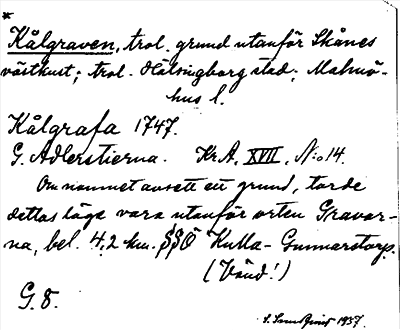 *
Kålgraven, trol. grund utanför Skånes
västkust; trol. Hälsingborg stad; Malmö-
hus l.
Kålgrafa 1747.
G. Adlerstierna. Kr.A, XVII, N:o 14.
Om namnet avsett ett grund, torde
dettas läge vara utanför orten Gravar-
na, bel. 4,2 km. SSÖ Kulla-Gunnarstorp.
(Vänd!)
G. 8.
1937.